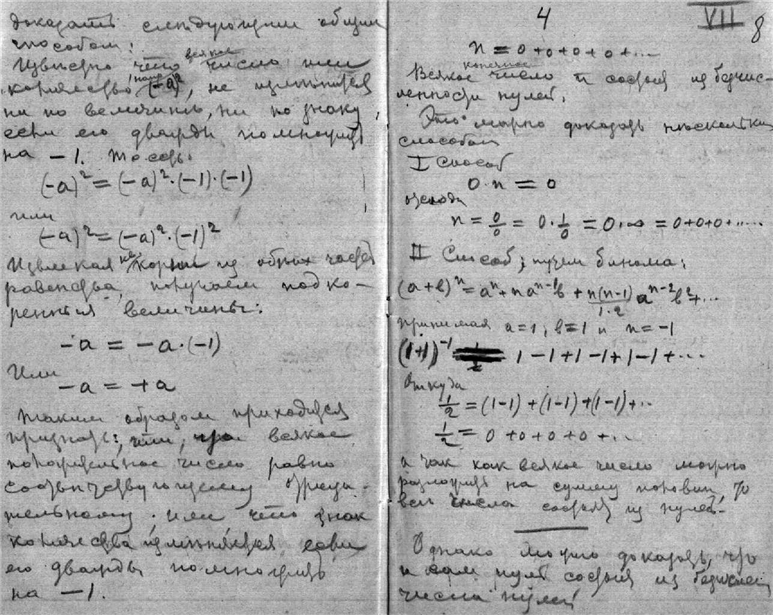 доказать следующим общим
способом:
Извѣстно что всякое число или
количество (-a)², не измѣняется
ни по величинѣ, ни по знаку,
если его дважды помножить
на -1. То есть
(-a)² = (-a)²·(-1)·(-1)
или
(-a)² = (-a)²·(-1)²
Извлекая корни из обѣих частей
равенства, получаем подко-
ренныя величины:
-a = -a·(-1)
Или
-a = +a
Таким образом приходится
признать, или, что всякое
число равно
соотвѣтствующему отрица-
тельному, или что знак
количества измѣняется, если
его дважды помножить
на -1.
4 VII 8
n = 0+0+0+0+...
Всякое конечное число n состоит из безчис-
ленности нулей.
Это можно доказать нѣсколькими
способами
I Способ
0·n = 0
отсюда
n = 0/0 = 0·1/0 = 0·∞ = 0+0+0+.....
II Способ, путем бинома:
(a+b)ⁿ = aⁿ + naⁿ⁻¹b + n(n-1)/1·2 aⁿ⁻²b² + ...
принимая a=1, b=1 и n=-1
(1+1)⁻¹ = 1-1+1-1+1-1+...
Откуда
1/2 = (1-1)+(1-1)+(1-1)+...
1/2 = 0+0+0+0+...
а так как всякое число можно
разложить на сумму половин, то
всѣ числа состоят из нулей.
Однако можно доказать, что
и сам нуль состоит из
числа нулей